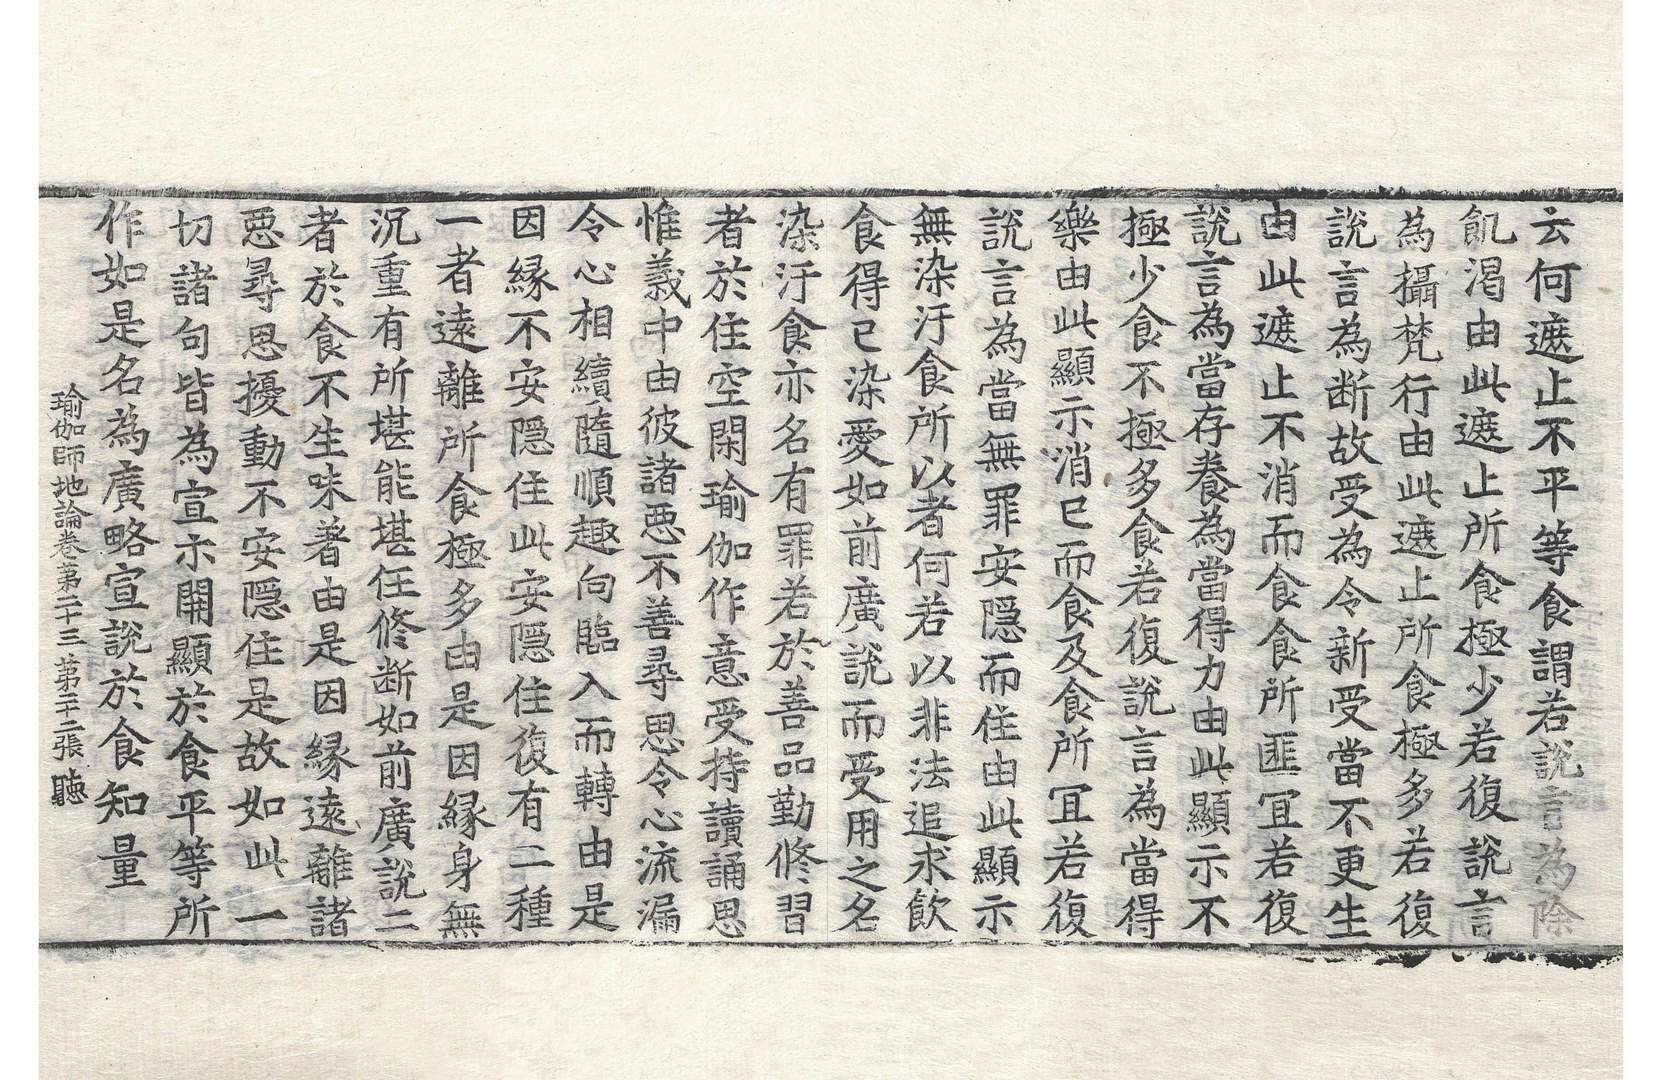 云何遮止不平等食謂若說言為除
飢渴由此遮止所食極少若復說言
為攝梵行由此遮止所食極多若復
說言為断故受為令新受當不更生
由此遮止不消而食食所匪冝若復
說言為當存養為當得力由此顯示不
極少食不極多食若復說言為當得
樂由此顯示消已而食及食所冝若復
說言為當無罪安隱而住由此顯示
無染汙食所以者何若以非法追求飲
食得已染愛如前廣說而受用之名
染汙食亦名有罪若於善品勤修習
者於住空閑瑜伽作意受持讀誦思
惟義中由彼諸惡不善尋思令心流漏
令心相續隨順趣向臨入而轉由是
因緣不安隱住此安隱住復有二種
一者遠離所食極多由是因緣身無
沉重有所堪能堪任修断如前廣說二
者於食不生味著由是因緣遠離諸
惡尋思擾動不安隱住是故如此一
切諸句皆為宣示開顯於食平等所
作如是名為廣略宣說於食知量
瑜伽師地論卷第二十三 第二十二張 聽